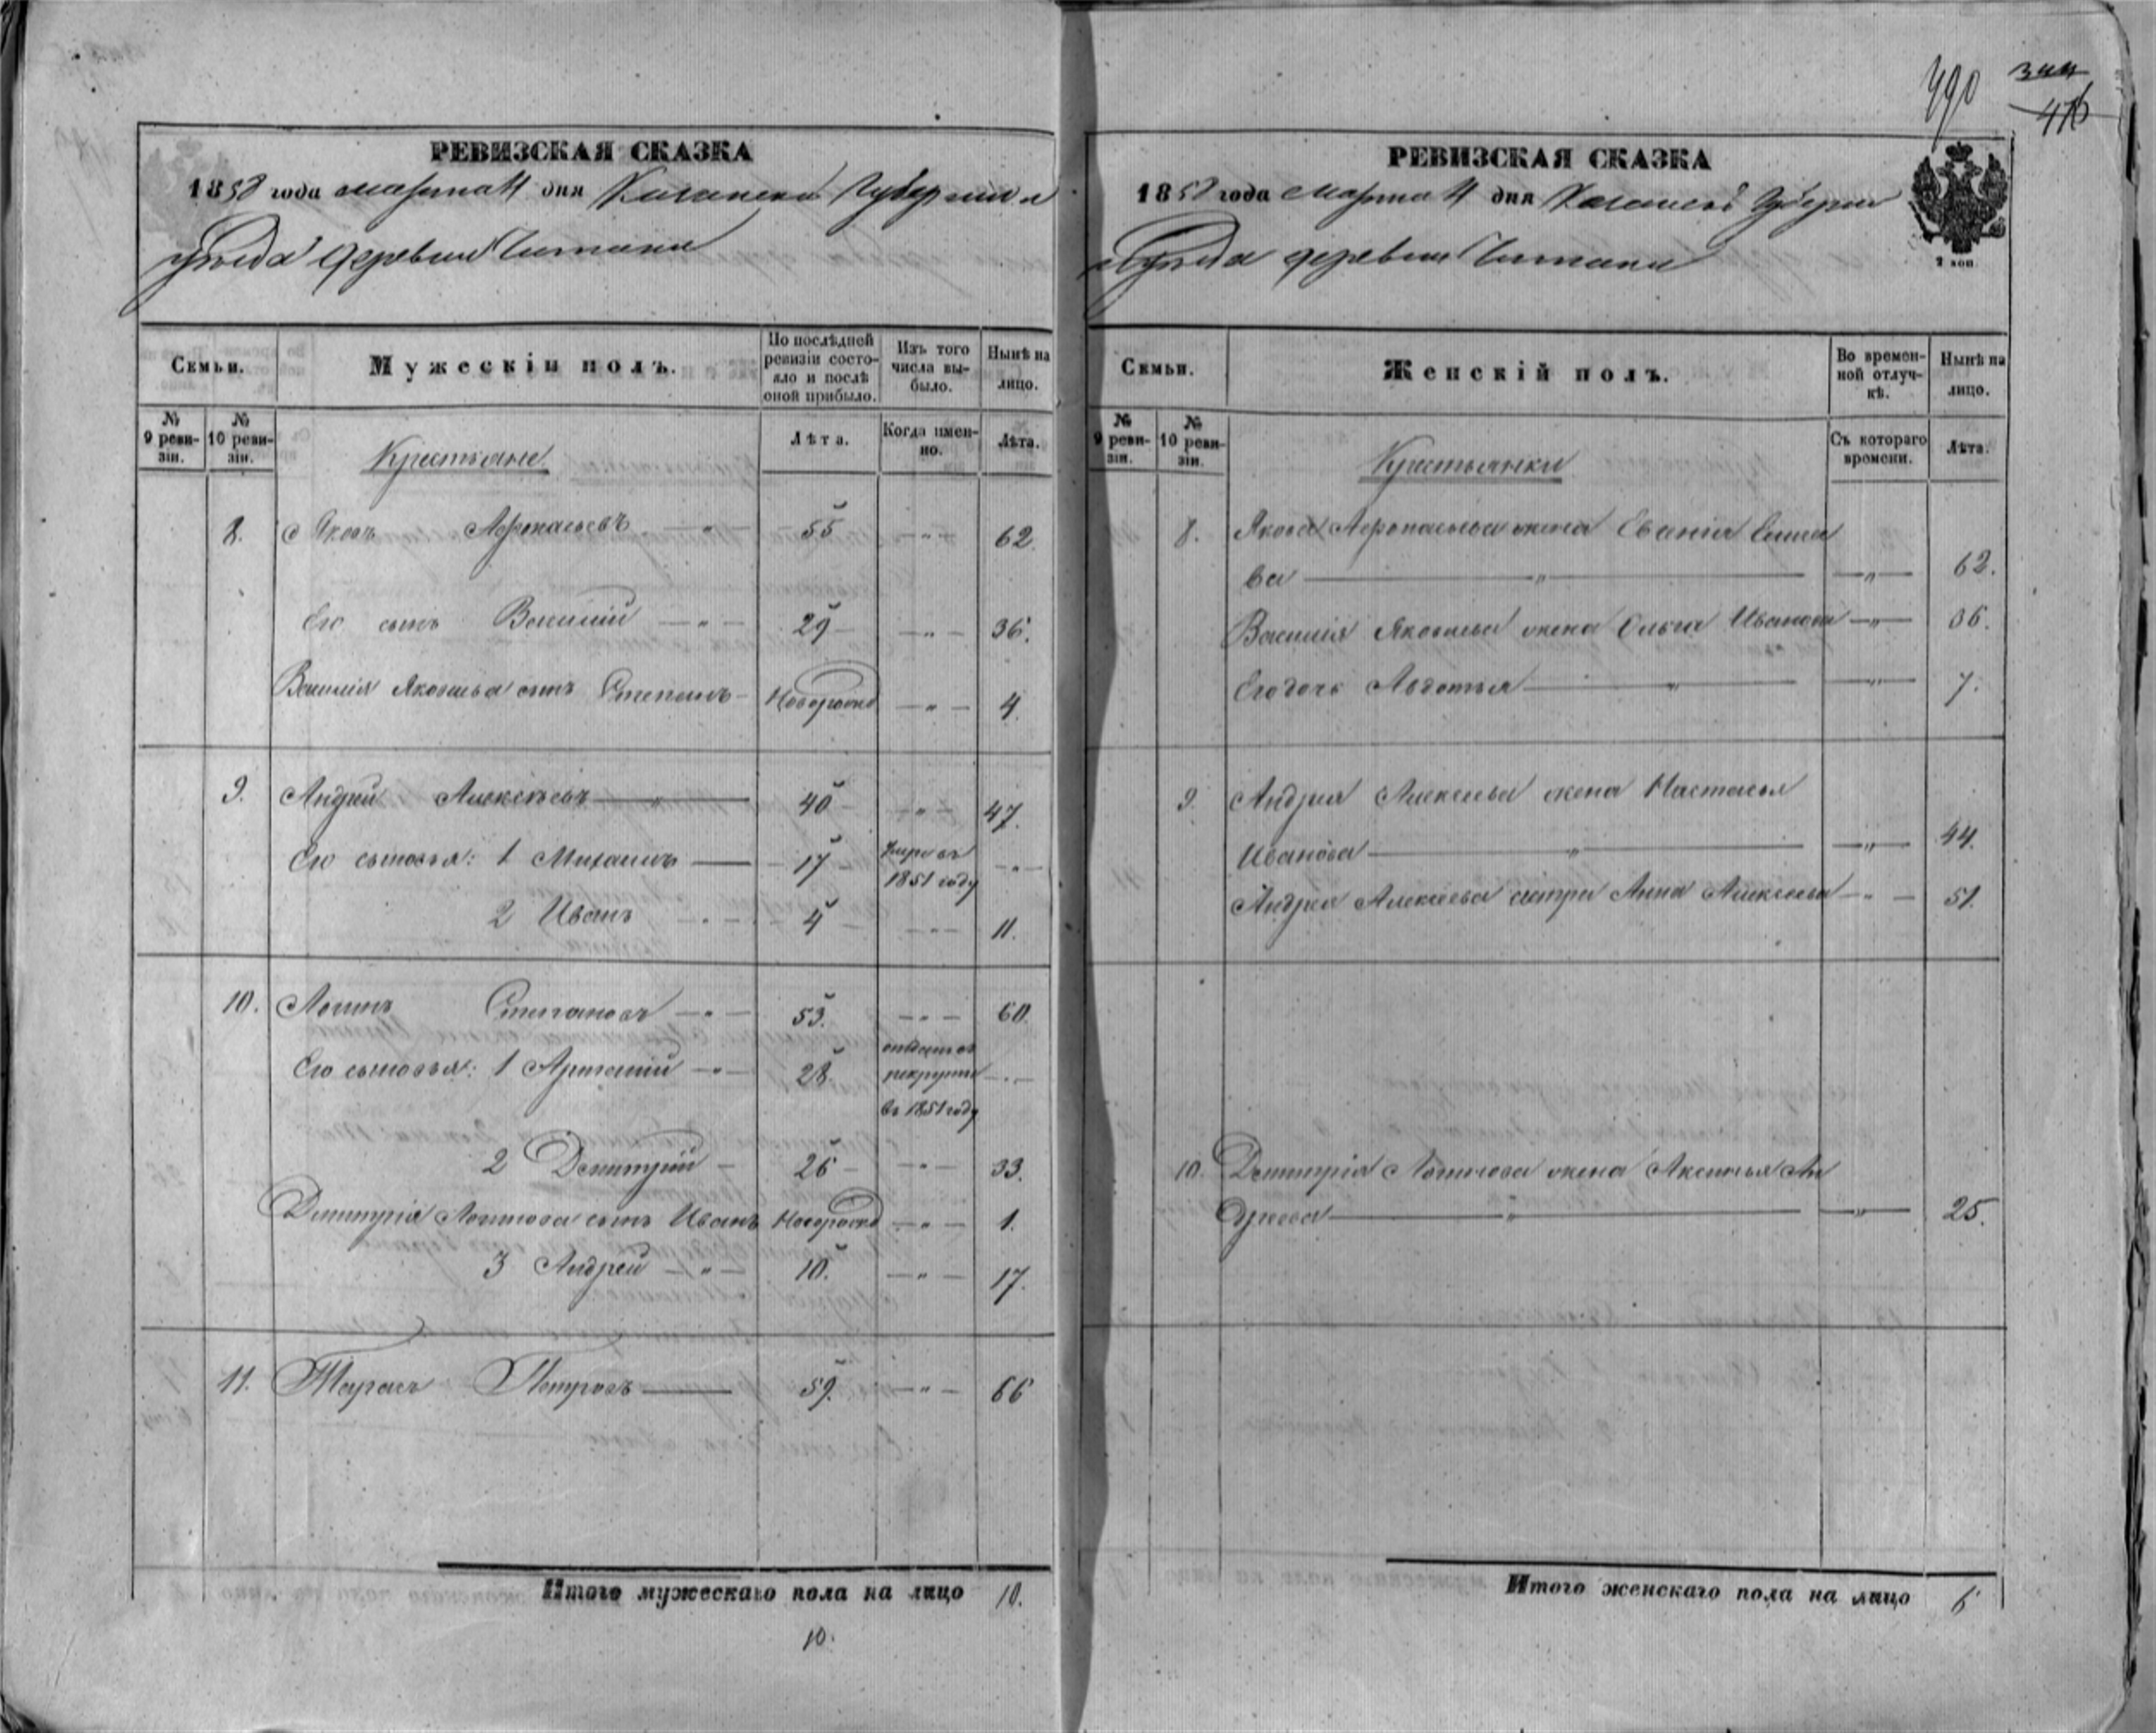 490
476
РЕВИЗСКАЯ СКАЗКА
1858 года марта 11 дня Казанской Губернии и
уѣзда деревни
Семьи.
Мужескій полъ.
По послѣдней ревизіи состояло и послѣ оной прибыло.
Изъ того числа выбыло.
Нынѣ на лицо.
№ 9 ревизіи.
№ 10 ревизіи.
Лѣта.
Когда именно.
Лѣта.
Крестьяне
8. Яковъ Афонасьевъ — " — 55 — " — 62.
Его сынъ Василий — " — 29 — " — 36.
Василія Яковлева сынъ Степанъ — Новорожд — " — 4.
9. Андрей Алексѣевъ — " — 40 — " — 47.
Его сыновья: 1 Михаилъ — 17 Умре въ 1851 году — " —
2 Иванъ — " — 4 — " — 11.
10. Логинъ Степановъ — " — 53. — " — 60.
Его сыновья: 1 Артамій — " — 28 отданъ въ рекруты въ 1851 году — " —
2 Дмитрій — 26 — " — 33.
Дмитрія Логинова сынъ Иванъ Новорожд — " — 1.
3 Андрей — " — 10. — " — 17.
11. Тарасъ Петровъ — 59. — " — 66
Итого мужескаго пола на лицо 10.
10.
РЕВИЗСКАЯ СКАЗКА
1858 года Марта 11 дня Казанской Губернии
и Уѣзда деревни
2 коп
Семьи.
Женскій полъ.
Во временной отлучкѣ.
Нынѣ на лицо.
№ 9 ревизіи.
№ 10 ревизіи.
Съ котораго времени.
Лѣта.
Крестьянки
8. Якова Афонасьева жена
ва — " — — " — 62.
Василія Яковлева жена Ольга Иванова — " — 36.
Его дочь Авдотья — " — — " — 7.
9. Андрея Алексеева жена Настасья
Иванова — " — — " — 44.
Андрея Алексеева сестра Анна Алексеева — " — 51.
10. Дмитрія Логинова жена Аксинья Ан
дреева — " — — " — 25.
Итого женскаго пола на лицо 6